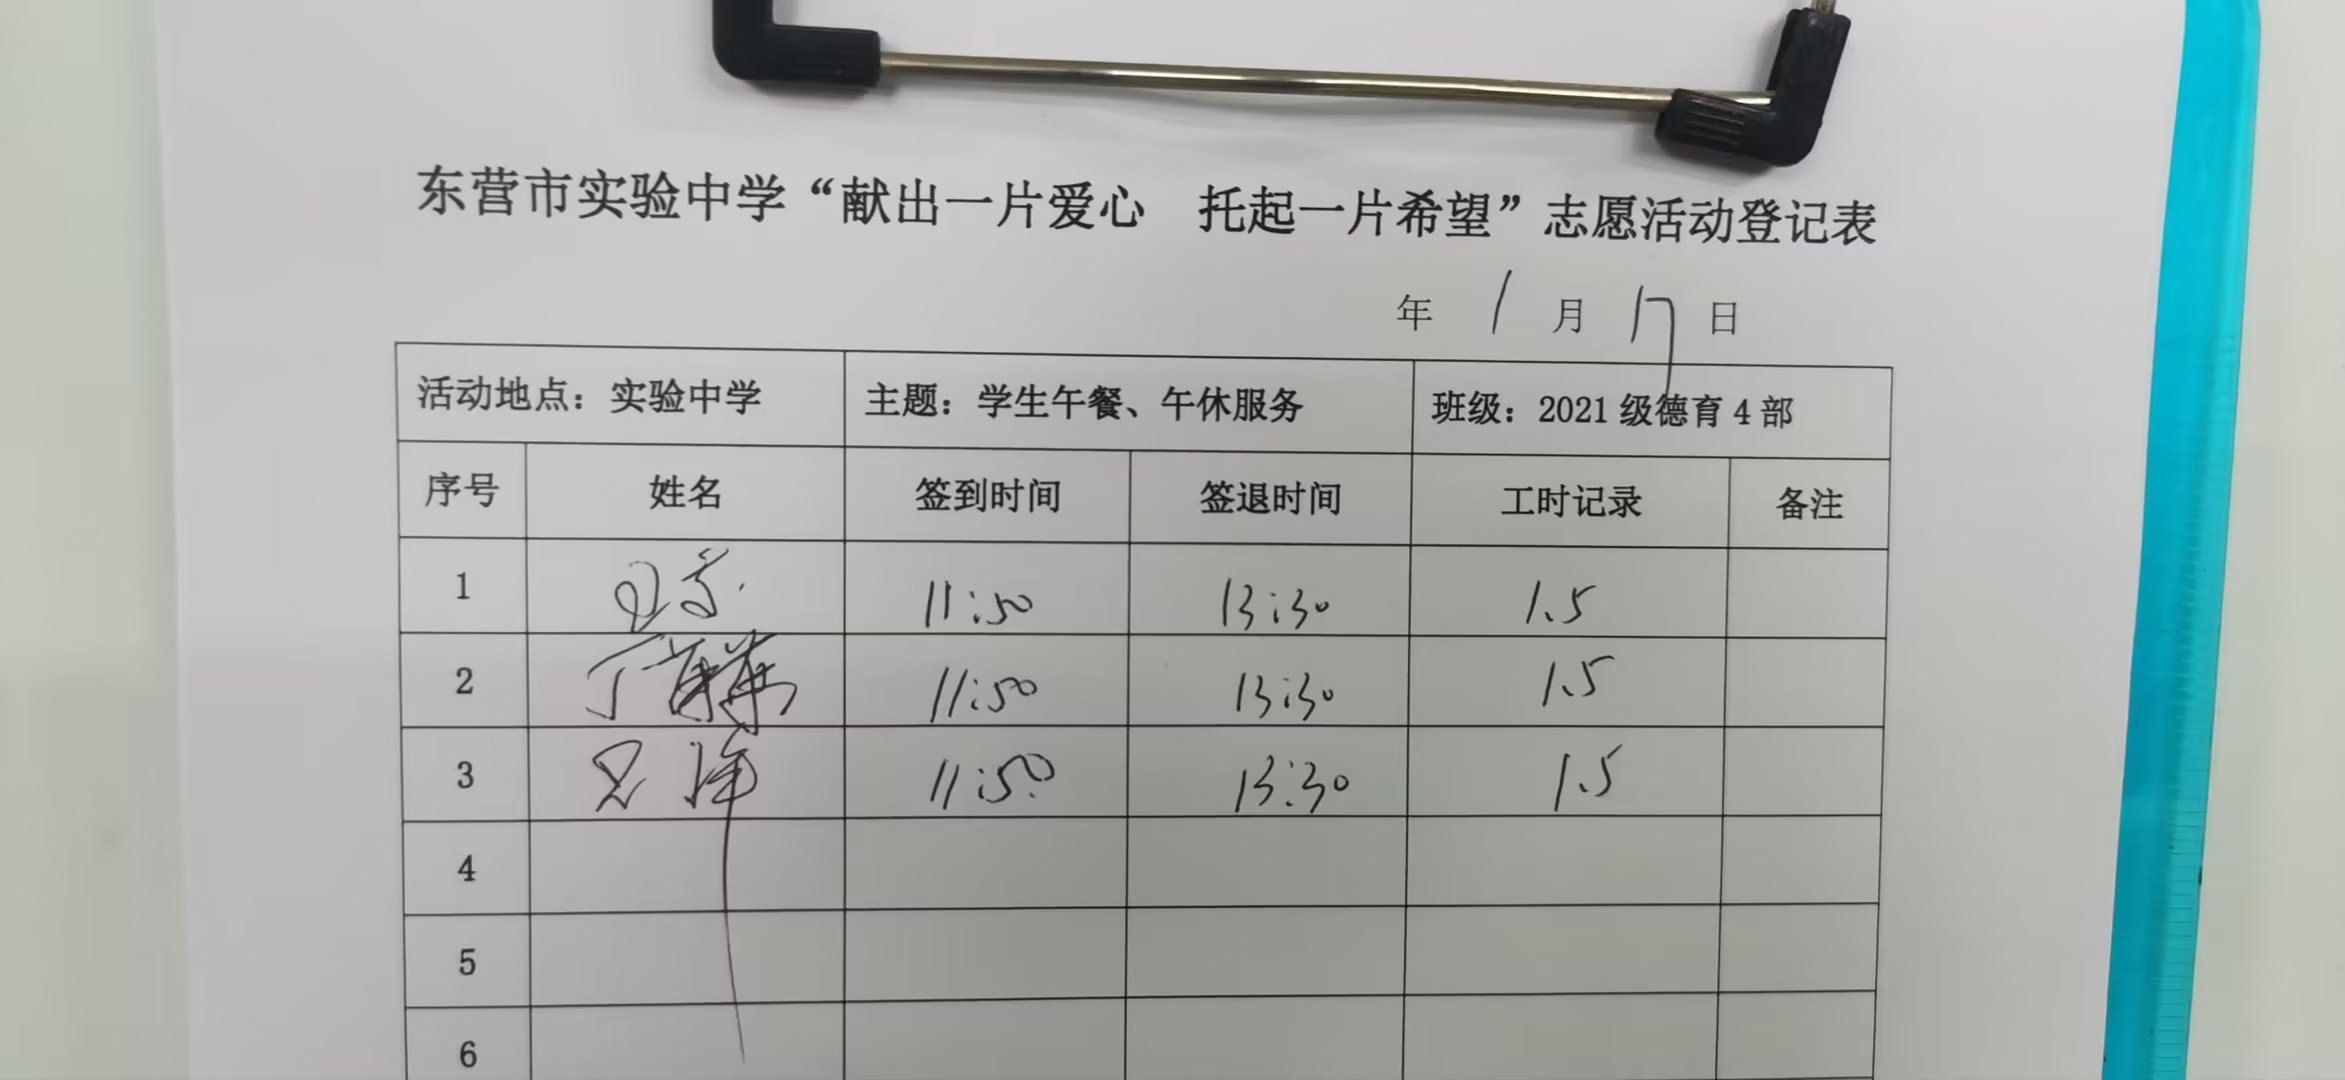 东营市实验中学“献出一片爱心 托起一片希望”志愿活动登记表
年 1 月 17 日
活动地点：实验中学 主题：学生午餐、午休服务 班级：2021 级德育 4 部
序号 姓名 签到时间 签退时间 工时记录 备注
1 11:50 13:30 1.5
2 丁 11:50 13:30 1.5
3 11:50 13:30 1.5
4
5
6